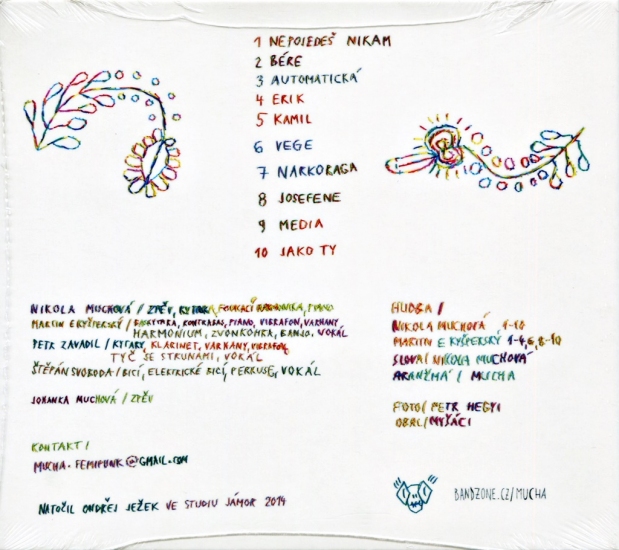 1 NEPOJEDEŠ NIKAM
2 BÉRE
3 AUTOMATICKÁ
4 ERIK
5 KAMIL
6 VEGE
7 NARKORAGA
8 JOSEFENE
9 MEDIA
10 JAKO TY
NIKOLA MUCHOVÁ / ZPĚV, KYTARA, FOUKACÍ HARMONIKA, PIANO
MARTIN E KYŠPERSKÝ / BASKYTARA, KONTRABAS, PIANO, VIBRAFON, VARHANY
HARMONIUM, ZVONKOHRA, BANJO, VOKÁL
PETR ZAVADIL / KYTARY, KLARINET, VARHANY, VIBRAFON,
TYČ SE STRUNAMI, VOKÁL
ŠTĚPÁN SVOBODA / BICÍ, ELEKTRICKÉ BICÍ, PERKUSE, VOKÁL
JOHANKA MUCHOVÁ / ZPĚV
KONTAKT /
MUCHA.FEMIPUNK@GMAIL.COM
NATOČIL ONDŘEJ JEŽEK VE STUDIU JÁMOR 2014
HUDBA /
NIKOLA MUCHOVÁ 1-10
MARTIN E KYŠPERSKÝ 1-4,6,8-10
SLOVA / NIKOLA MUCHOVÁ
ARANŽMÁ / MUCHA
FOTO / PETR HEGYI
OBAL / MYŠÁCI
BANDZONE.CZ/MUCHA